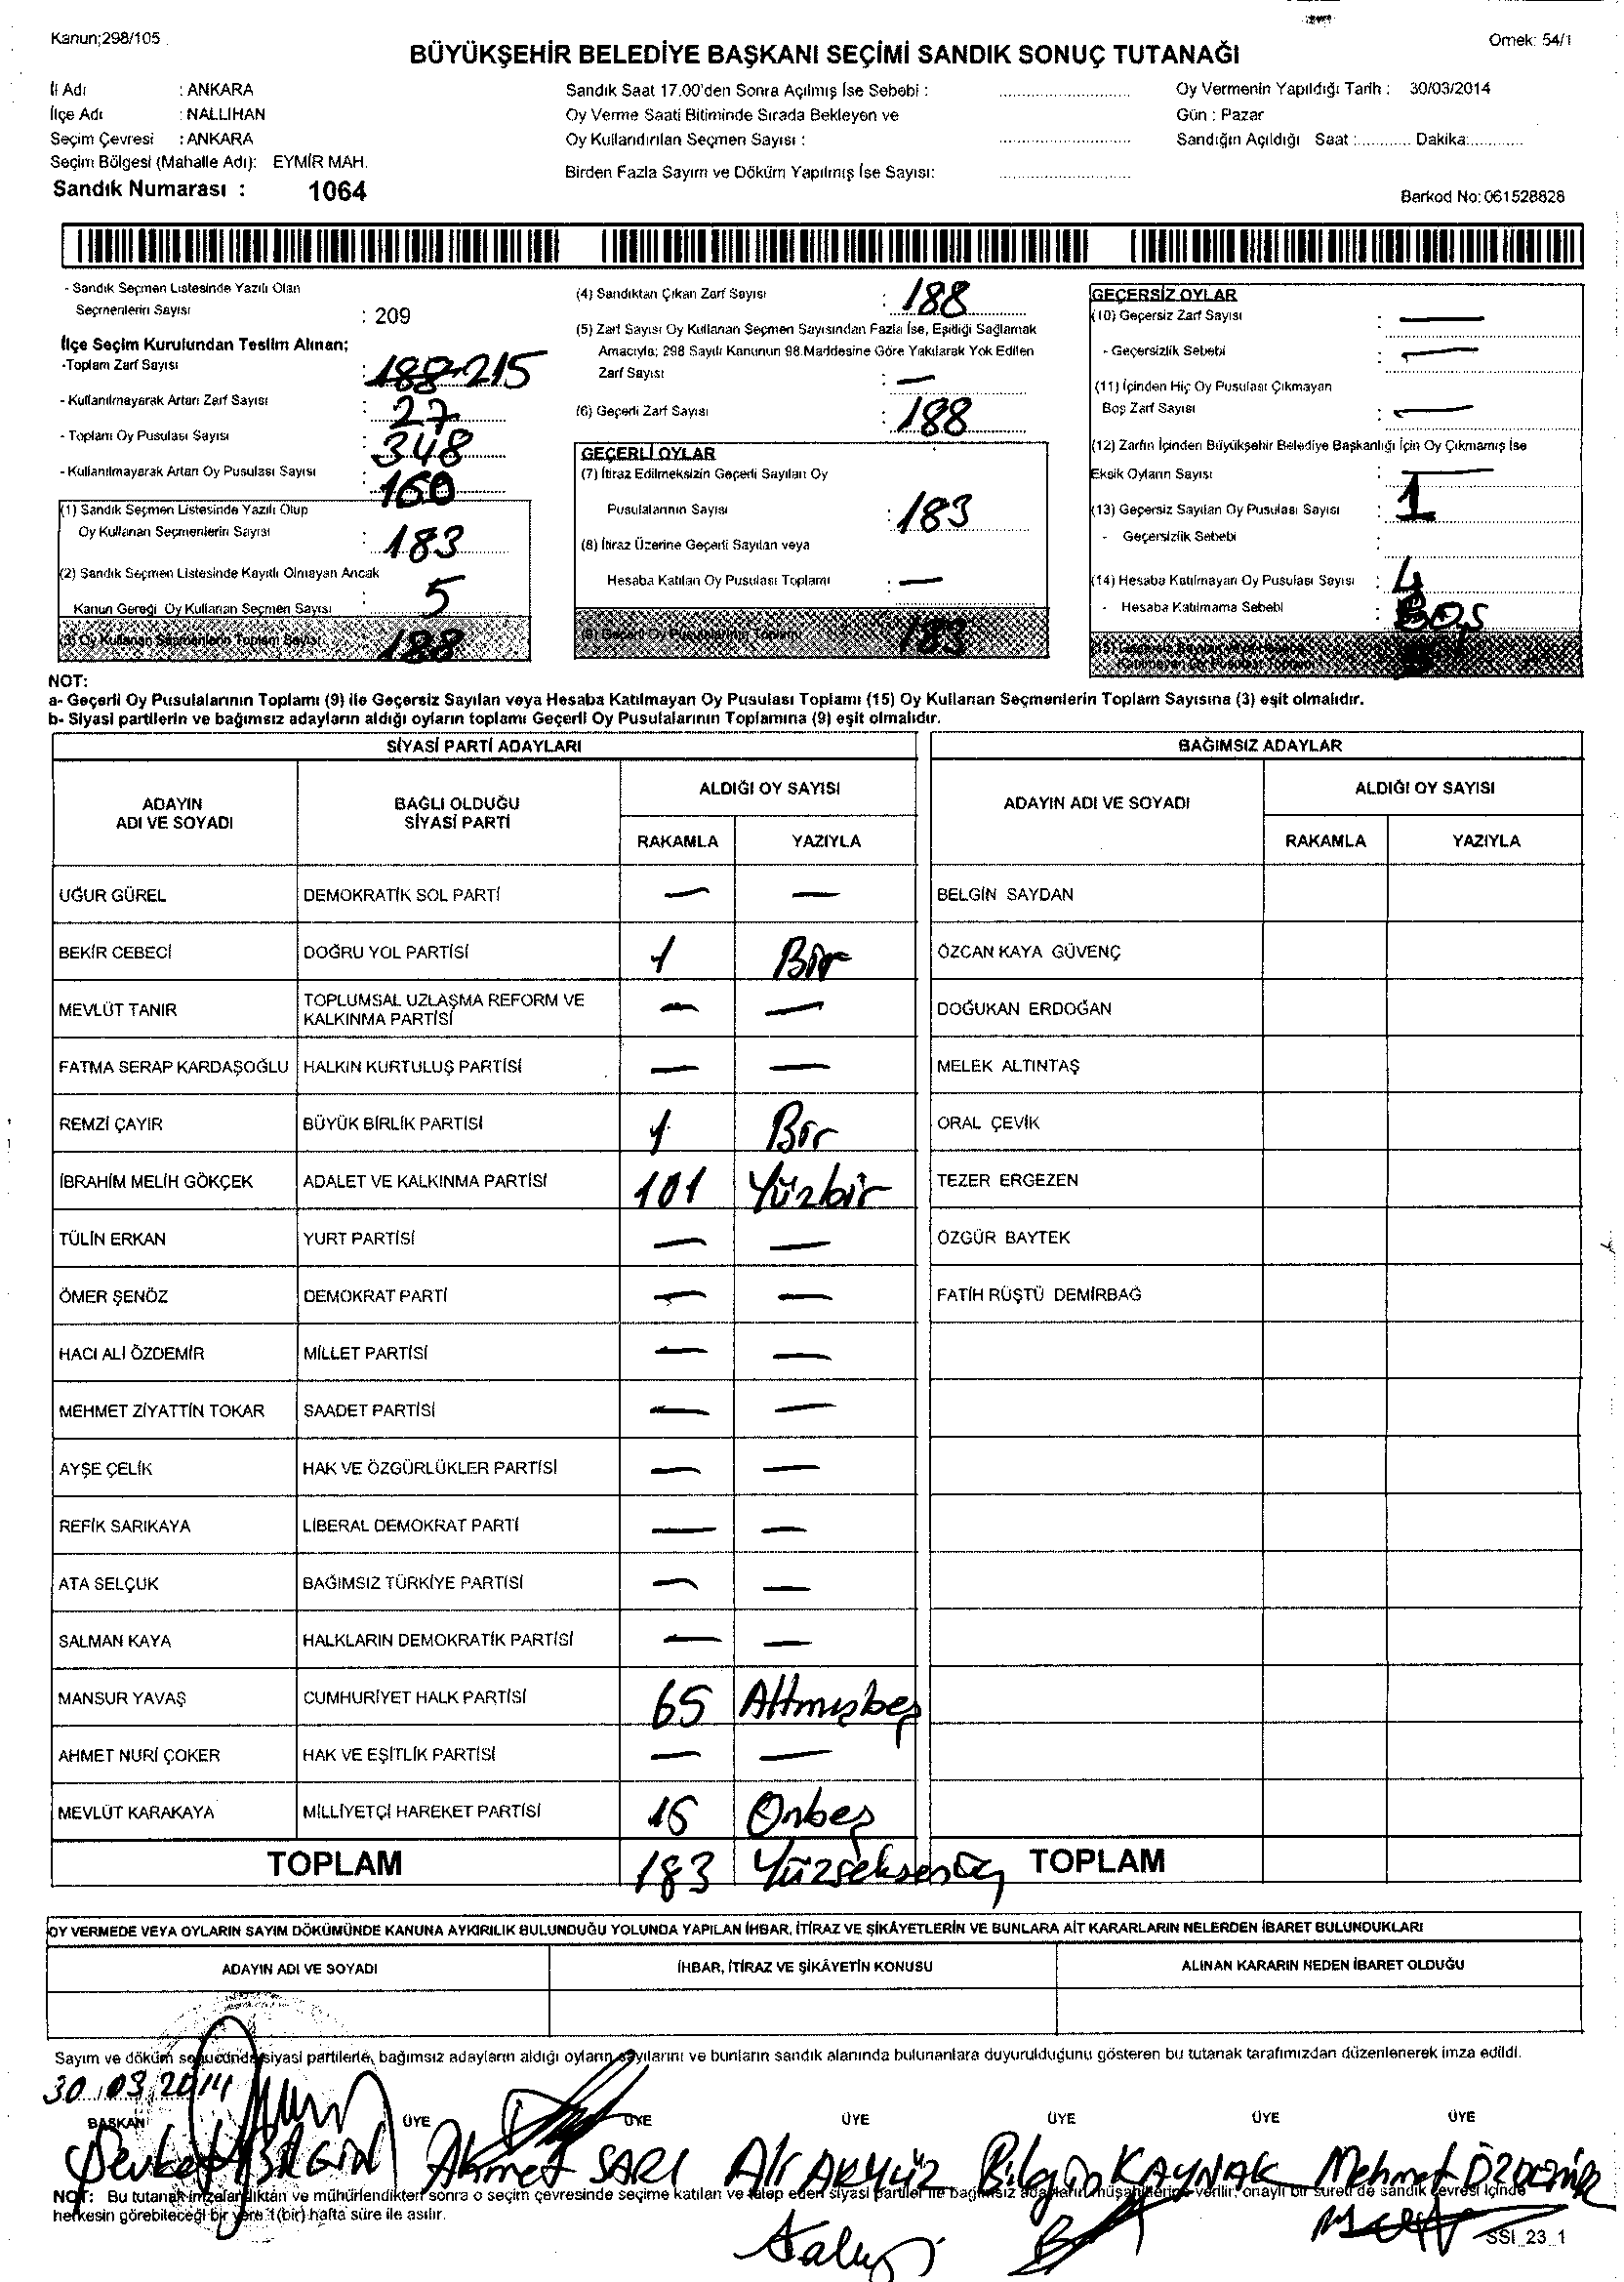 Kanun;298/105
Örnek: 54/1
BÜYÜKŞEHİR BELEDİYE BAŞKANI SEÇİMİ SANDIK SONUÇ TUTANAĞI
İl Adı : ANKARA
İlçe Adı : NALLIHAN
Seçim Çevresi : ANKARA
Seçim Bölgesi (Mahalle Adı): EYMİR MAH.
Sandık Numarası : 1064
Sandık Saat 17.00'den Sonra Açılmış İse Sebebi :
Oy Verme Saati Bitiminde Sırada Bekleyen ve
Oy Kullandırılan Seçmen Sayısı :
Birden Fazla Sayım ve Döküm Yapılmış İse Sayısı:
Oy Vermenin Yapıldığı Tarih : 30/03/2014
Gün : Pazar
Sandığın Açıldığı Saat :............ Dakika:............
Barkod No: 061528828
- Sandık Seçmen Listesinde Yazılı Olan
Seçmenlerin Sayısı : 209
İlçe Seçim Kurulundan Teslim Alınan;
-Toplam Zarf Sayısı : 188 215
- Kullanılmayarak Artan Zarf Sayısı : 27
- Toplam Oy Pusulası Sayısı : 348
- Kullanılmayarak Artan Oy Pusulası Sayısı : 160
(1) Sandık Seçmen Listesinde Yazılı Olup
Oy Kullanan Seçmenlerin Sayısı : 183
(2) Sandık Seçmen Listesinde Kayıtlı Olmayan Ancak
Kanun Gereği Oy Kullanan Seçmen Sayısı : 5
(3) Oy Kullanan Seçmenlerin Toplam Sayısı : 188
(4) Sandıktan Çıkan Zarf Sayısı : 188
(5) Zarf Sayısı Oy Kullanan Seçmen Sayısından Fazla İse, Eşitliği Sağlamak
Amacıyla; 298 Sayılı Kanunun 98.Maddesine Göre Yakılarak Yok Edilen
Zarf Sayısı : —
(6) Geçerli Zarf Sayısı : 188
GEÇERLİ OYLAR
(7) İtiraz Edilmeksizin Geçerli Sayılan Oy
Pusulalarının Sayısı : 183
(8) İtiraz Üzerine Geçerli Sayılan veya
Hesaba Katılan Oy Pusulası Toplamı : —
(9) Geçerli Oy Pusulalarının Toplamı 183
GEÇERSİZ OYLAR
(10) Geçersiz Zarf Sayısı : —
- Geçersizlik Sebebi : —
(11) İçinden Hiç Oy Pusulası Çıkmayan
Boş Zarf Sayısı : —
(12) Zarfın İçinden Büyükşehir Belediye Başkanlığı İçin Oy Çıkmamış İse
Eksik Oyların Sayısı : —
(13) Geçersiz Sayılan Oy Pusulası Sayısı : 1
- Geçersizlik Sebebi :
(14) Hesaba Katılmayan Oy Pusulası Sayısı : 4
- Hesaba Katılmama Sebebi : Boş
NOT:
a- Geçerli Oy Pusulalarının Toplamı (9) ile Geçersiz Sayılan veya Hesaba Katılmayan Oy Pusulası Toplamı (15) Oy Kullanan Seçmenlerin Toplam Sayısına (3) eşit olmalıdır.
b- Siyasi partilerin ve bağımsız adayların aldığı oyların toplamı Geçerli Oy Pusulalarının Toplamına (9) eşit olmalıdır.
SİYASİ PARTİ ADAYLARI BAĞIMSIZ ADAYLAR
ADAYIN ADI VE SOYADI BAĞLI OLDUĞU SİYASİ PARTİ ALDIĞI OY SAYISI ADAYIN ADI VE SOYADI ALDIĞI OY SAYISI
RAKAMLA YAZIYLA RAKAMLA YAZIYLA
UĞUR GÜREL DEMOKRATİK SOL PARTİ — — BELGİN SAYDAN
BEKİR CEBECİ DOĞRU YOL PARTİSİ 1 Bir ÖZCAN KAYA GÜVENÇ
MEVLÜT TANIR TOPLUMSAL UZLAŞMA REFORM VE KALKINMA PARTİSİ — — DOĞUKAN ERDOĞAN
FATMA SERAP KARDAŞOĞLU HALKIN KURTULUŞ PARTİSİ — — MELEK ALTINTAŞ
REMZİ ÇAYIR BÜYÜK BİRLİK PARTİSİ 1 Bir ORAL ÇEVİK
İBRAHİM MELİH GÖKÇEK ADALET VE KALKINMA PARTİSİ 101 Yüzbir TEZER ERGEZEN
TÜLİN ERKAN YURT PARTİSİ — — ÖZGÜR BAYTEK
ÖMER ŞENÖZ DEMOKRAT PARTİ — — FATİH RÜŞTÜ DEMİRBAĞ
HACI ALİ ÖZDEMİR MİLLET PARTİSİ — —
MEHMET ZİYATTİN TOKAR SAADET PARTİSİ — —
AYŞE ÇELİK HAK VE ÖZGÜRLÜKLER PARTİSİ — —
REFİK SARIKAYA LİBERAL DEMOKRAT PARTİ — —
ATA SELÇUK BAĞIMSIZ TÜRKİYE PARTİSİ — —
SALMAN KAYA HALKLARIN DEMOKRATİK PARTİSİ — —
MANSUR YAVAŞ CUMHURİYET HALK PARTİSİ 65 Altmışbeş
AHMET NURİ ÇOKER HAK VE EŞİTLİK PARTİSİ — —
MEVLÜT KARAKAYA MİLLİYETÇİ HAREKET PARTİSİ 15 Onbeş
TOPLAM 183 Yüzseksenüç TOPLAM
OY VERMEDE VEYA OYLARIN SAYIM DÖKÜMÜNDE KANUNA AYKIRILIK BULUNDUĞU YOLUNDA YAPILAN İHBAR, İTİRAZ VE ŞİKÂYETLERİN VE BUNLARA AİT KARARLARIN NELERDEN İBARET BULUNDUKLARI
ADAYIN ADI VE SOYADI İHBAR, İTİRAZ VE ŞİKÂYETİN KONUSU ALINAN KARARIN NEDEN İBARET OLDUĞU
Sayım ve döküm sonucunda siyasi partilerle, bağımsız adayların aldığı oyların sayılarını ve bunların sandık alanında bulunanlara duyurulduğunu gösteren bu tutanak tarafımızdan düzenlenerek imza edildi.
30.03.2014
BAŞKAN ÜYE ÜYE ÜYE ÜYE ÜYE ÜYE
Şevket BİLGİN Ahmet SARI Ali AKYÜZ Bilgin KAYNAK Mehmet ÖZDEMİR
NOT: Bu tutanak imzalandıktan ve mühürlendikten sonra o seçim çevresinde seçime katılan ve talep eden siyasi partiler ile bağımsız adayların müşahitlerine verilir, onaylı bir sureti de sandık çevresi içinde
herkesin görebileceği bir yere 1(bir) hafta süre ile asılır.
SSI_23_1